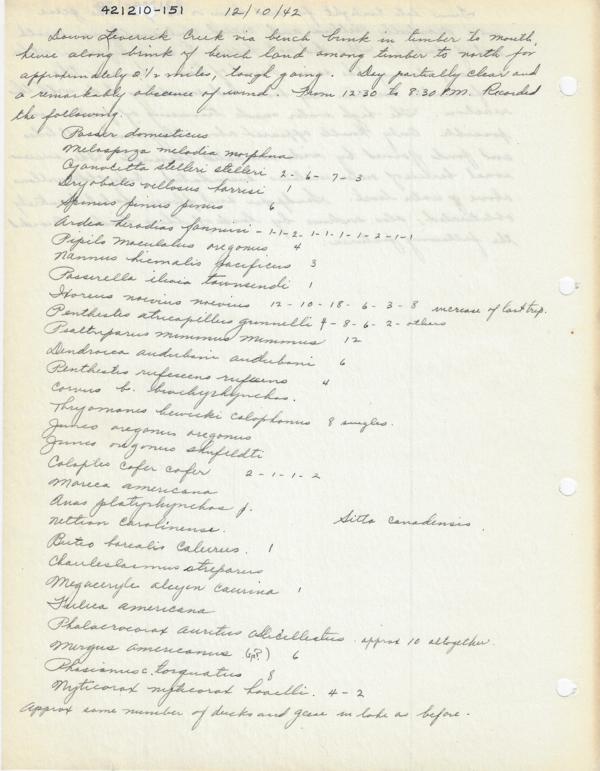 421210-151 12/10/42
Down Leverick Creek via bench brink in timber to mouth,
hence along brink of bench land among timber to north for
approximately 2 1/2 miles, tough going. Day partially clear and
a remarkably absence of wind. From 12:30 to 8:30 P.M. Recorded
the following.
Passer domesticus
Melospiza melodia morphna
Cyanocitta stelleri stelleri 2-6-7-3
Dryobates villosus harrisi 1
Spinus pinus pinus 6
Ardea herodias fannini - 1-1-2-1-1-1-1-2-1-1
Pipilo maculatus oregonus 4
Nannus hiemalis pacificus 3
Passerella iliaca townsendi 1
Ixoreus naevius naevius 12-10-18-6-3-8 increase of last trip.
Penthestes atricapillus 4-8-6-2-others
Psaltriparus minimus minimus 12
Dendroica auduboni auduboni 6
Penthestes rufescens rufescens 4
Corvus b. brachyrhynchos.
Thryomanes bewicki calophonus 8 singles.
Junco oregonus oregonus
Junco oregonus shufeldti
Colaptes cafer cafer 2-1-1-2
Mareca americana
Anas platyrhynchos p.
Nettion carolinense. Sitta canadensis.
Buteo borealis calurus. 1
Chaulelasmus streperus
Megaceryle alcyon caurina 1
Fulica americana
Phalacrocorax auritus approx 10 altogether.
Mergus americanus 6
Phasianus c. torquatus 8
Nycticorax nycticorax hoactli. 4-2
Approx same number of ducks and geese in lake as before.